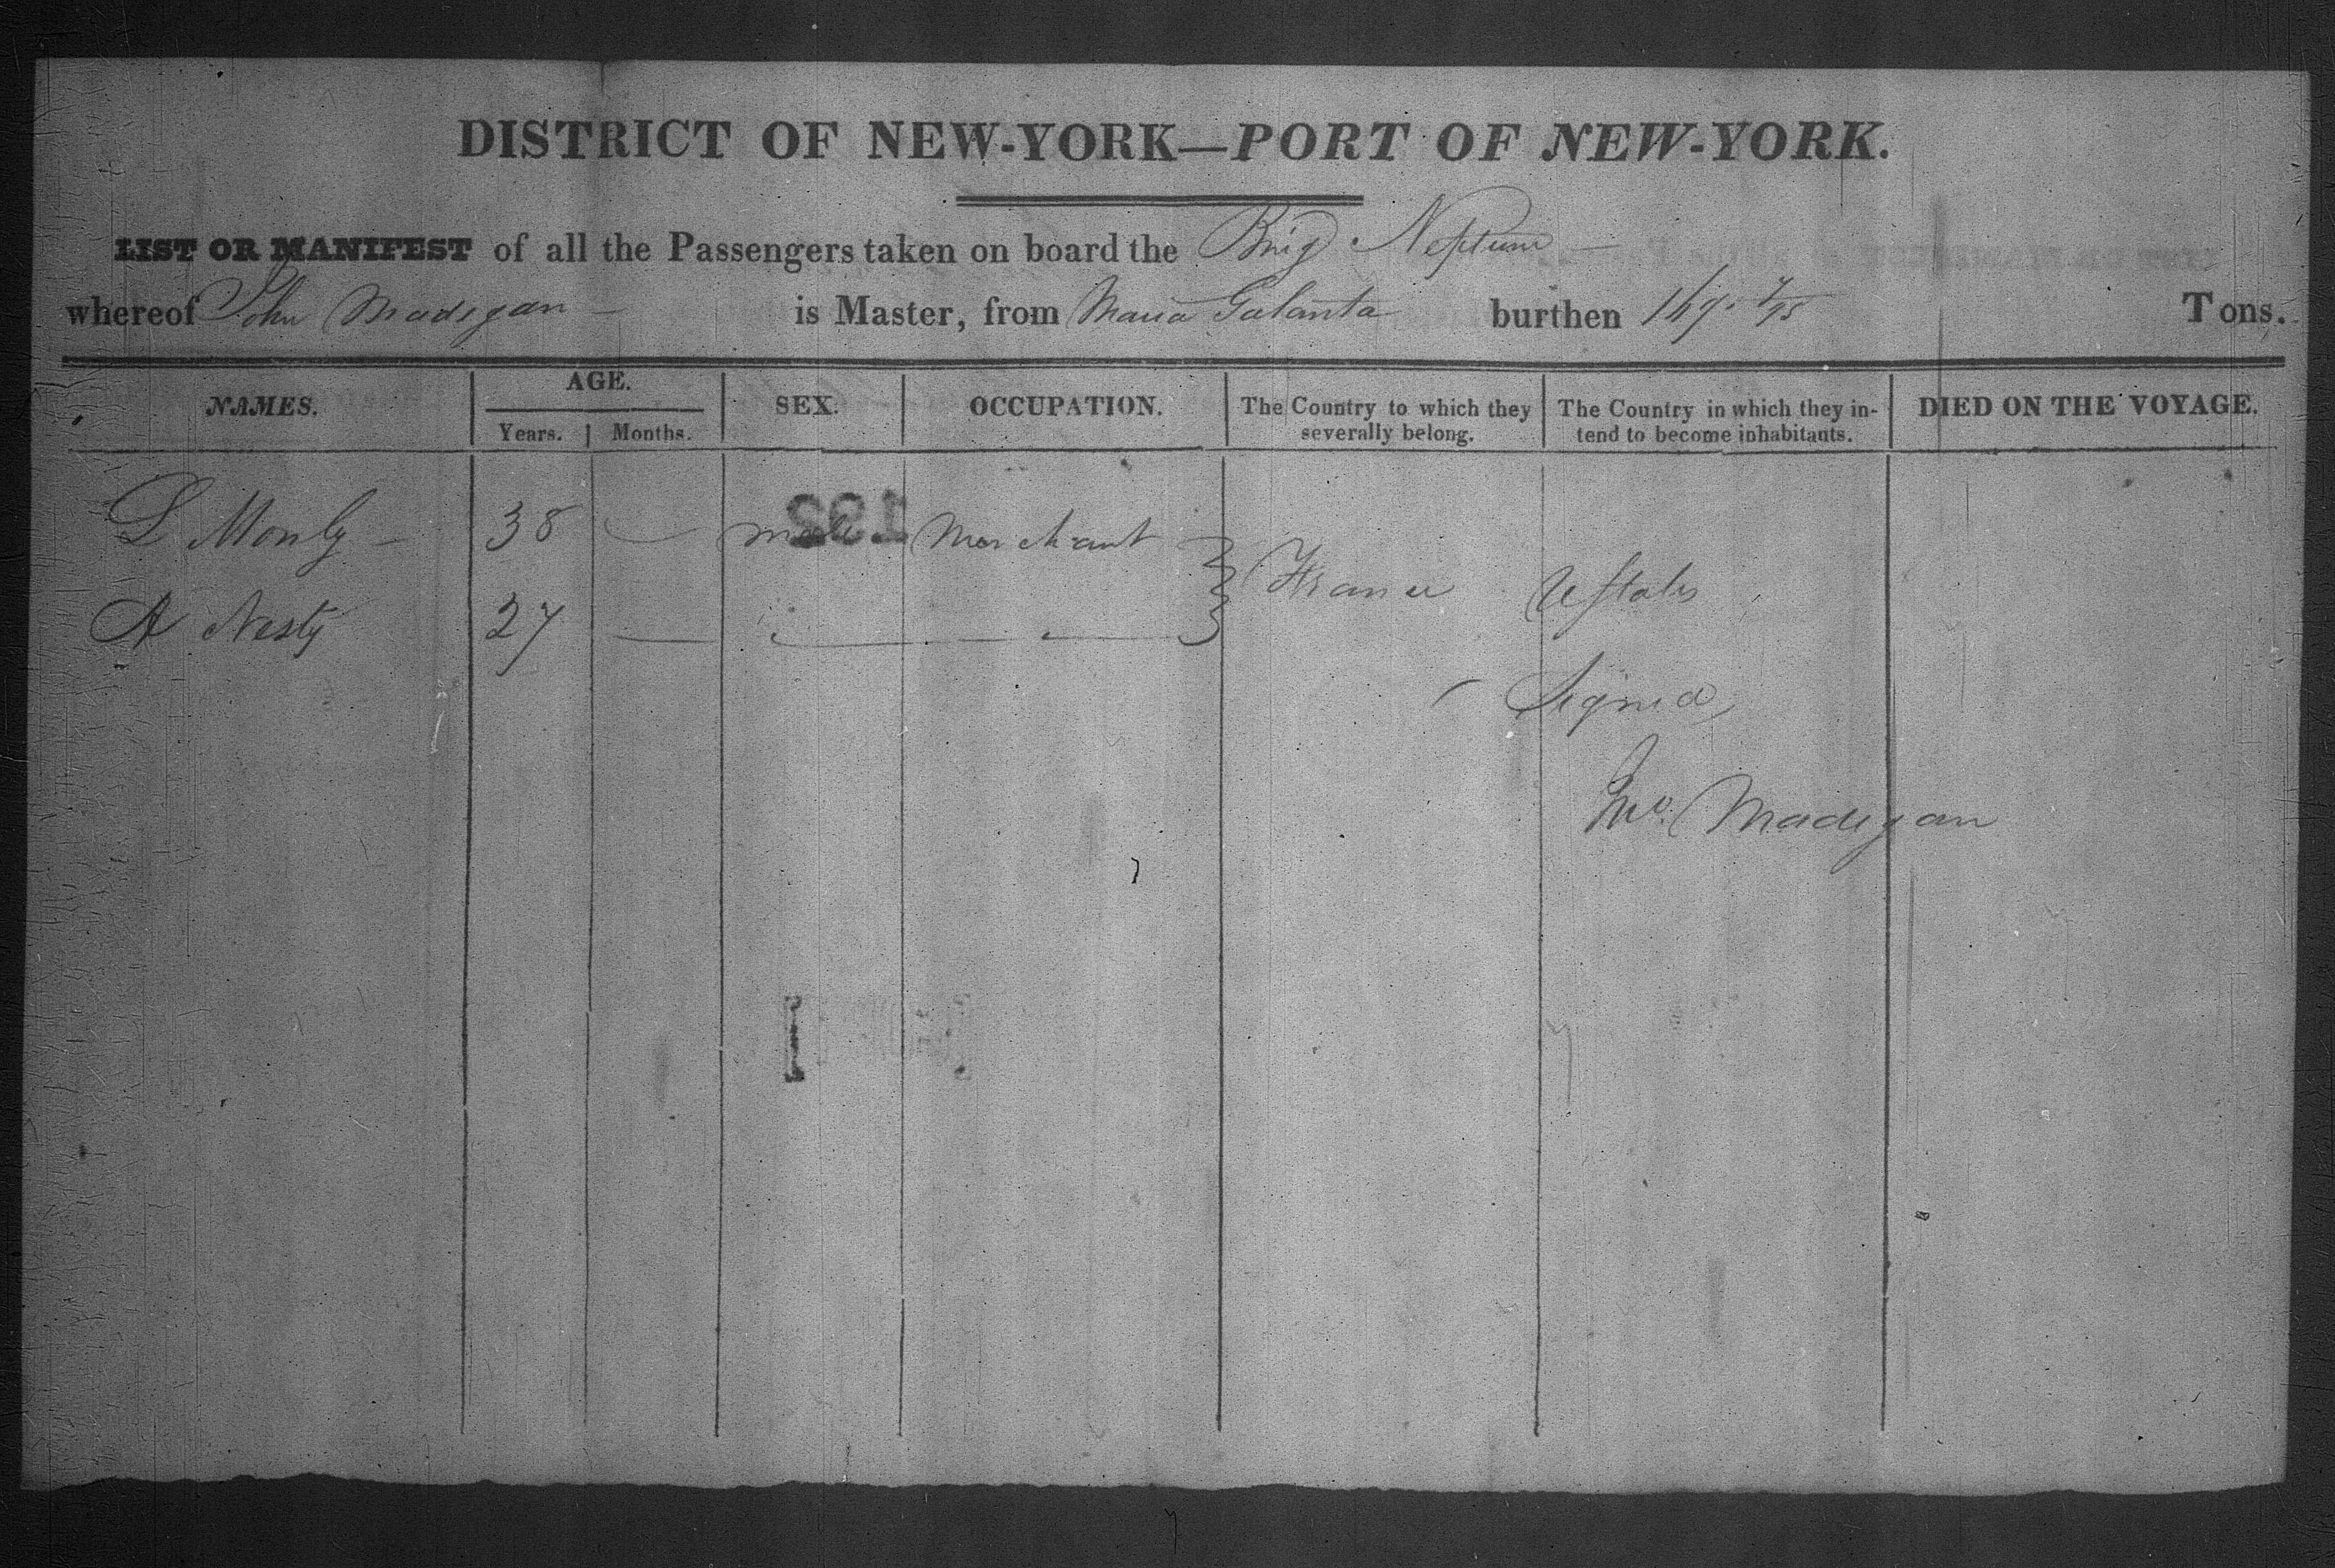 DISTRICT OF NEW-YORK—PORT OF NEW-YORK.
LIST OR MANIFEST of all the Passengers taken on board the Brig Neptune
whereof John Madigan is Master, from Maria Galanta burthen Tons.
NAMES. AGE. SEX. OCCUPATION. The Country to which they severally belong. The Country in which they intend to become inhabitants. DIED ON THE VOYAGE.
Years. Months.
192
L 38 — male Merchant
France UStates
A Nesty 27
Signed
Jno. Madigan